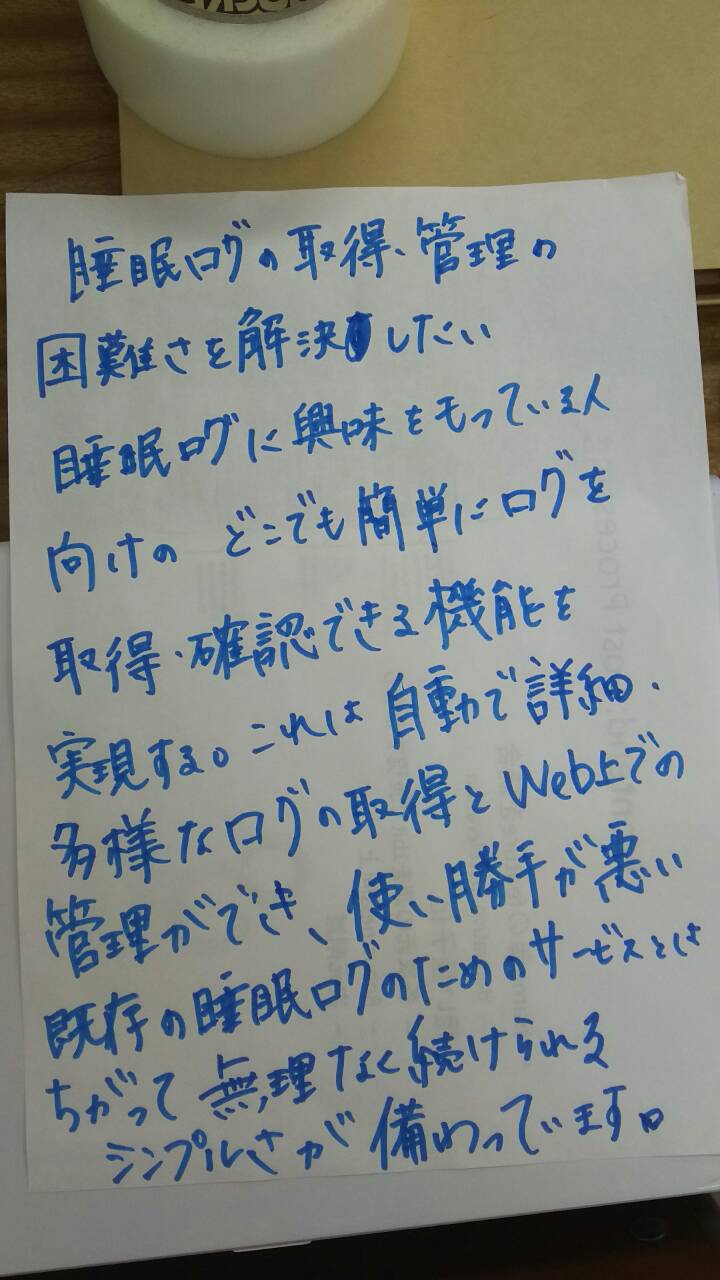 睡眠ログの取得、管理の
困難さを解決したい
睡眠ログに興味をもっている人
向けの どこでも簡単にログを
取得・確認できる機能を
実現する。これは自動で詳細・
多様なログの取得とWeb上での
管理ができ、使い勝手が悪い
既存の睡眠ログのためのサービスとは
ちがって 無理なく続けられる
シンプルさが備わっています。